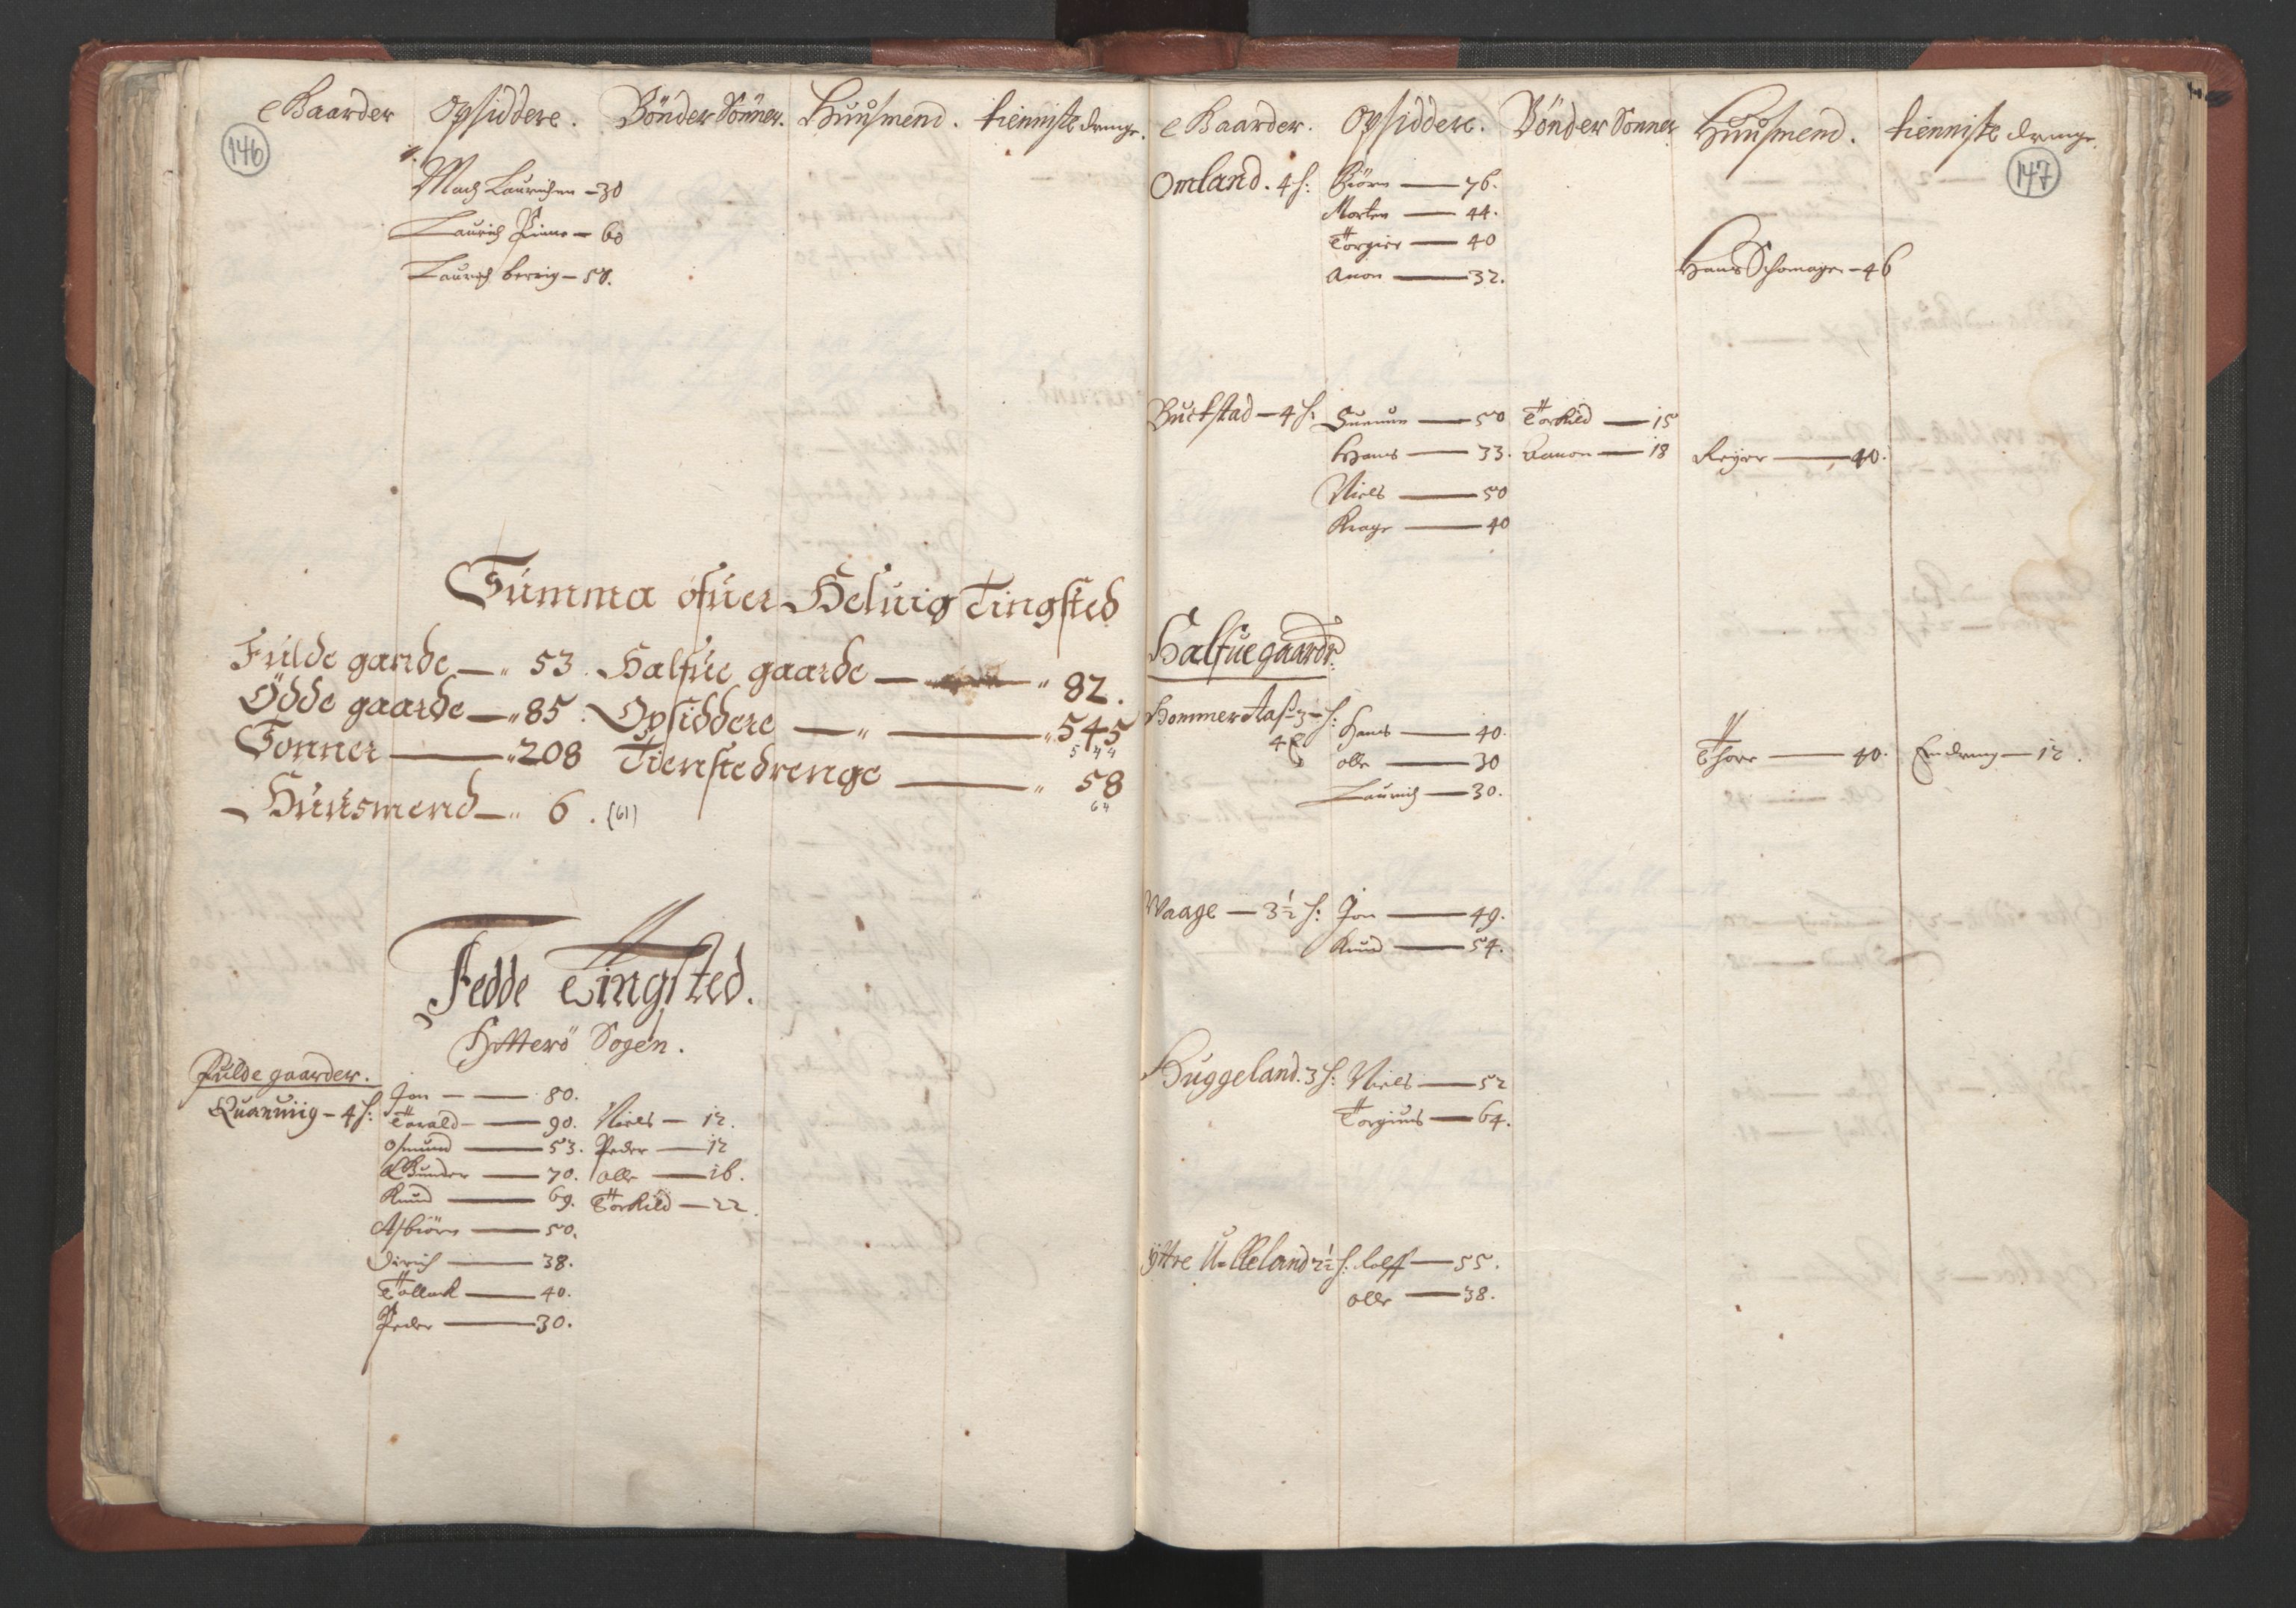 Gaarder Opsiddere. Bönder Sönner. Huusmend. tienniste drenge.
146
Mads Lauridsen - 30
Laurids Pinne - 60
Laurids berrig - 50.
Summa ofuer Heluig Tingsted
Fulde gaarde — " 53. Halfue gaarde — " 82.
Ödde gaarde — " 85. Opsiddere — " — " 545
544
Sonner — " 208 Tienstedrenge — " 58
64
Huusmend — " 6. (61)
Fedde Tingsted.
Hitterö Sogen.
Fulde gaarder.
Quanuiig - 4 h: Jon — 80.
Torald — 90. Niels — 12.
Osmund — 53. Peder — 12
Gunder — 70. olle — 16.
Knud — 69. Torkild — 22.
Asbiörn — 50.
Dirich — 38.
Tollack — 40.
Peder — 30.
Gaarder. Opsiddere. Bönder Sonner. Huusmend. tienniste drenge.
147
Omland. 4 h: Biörn — 76.
Morten — 44.
Torgier — 40
Anon — 32. Hans Schomager - 46
Buckstad - 4 h: Gunuun — 50 Torkild — 15
Hans — 33. Aanon — 18 Reyer — 40.
Niels — 50
Aage — 40
Halfuegaarde.
HommerAas - 3 - h: Hans — 40. Thore — 40. Endreng — 12.
4
olle — 30
Laurids — 30.
Waage — 3 1/2 h: Jon — 49.
Knud — 54.
Huggeland. 3 h: Niels — 52
Torgiuus — 64.
ÿttre Ulleland 2 1/2 h: Rolff — 55.
olle — 38.